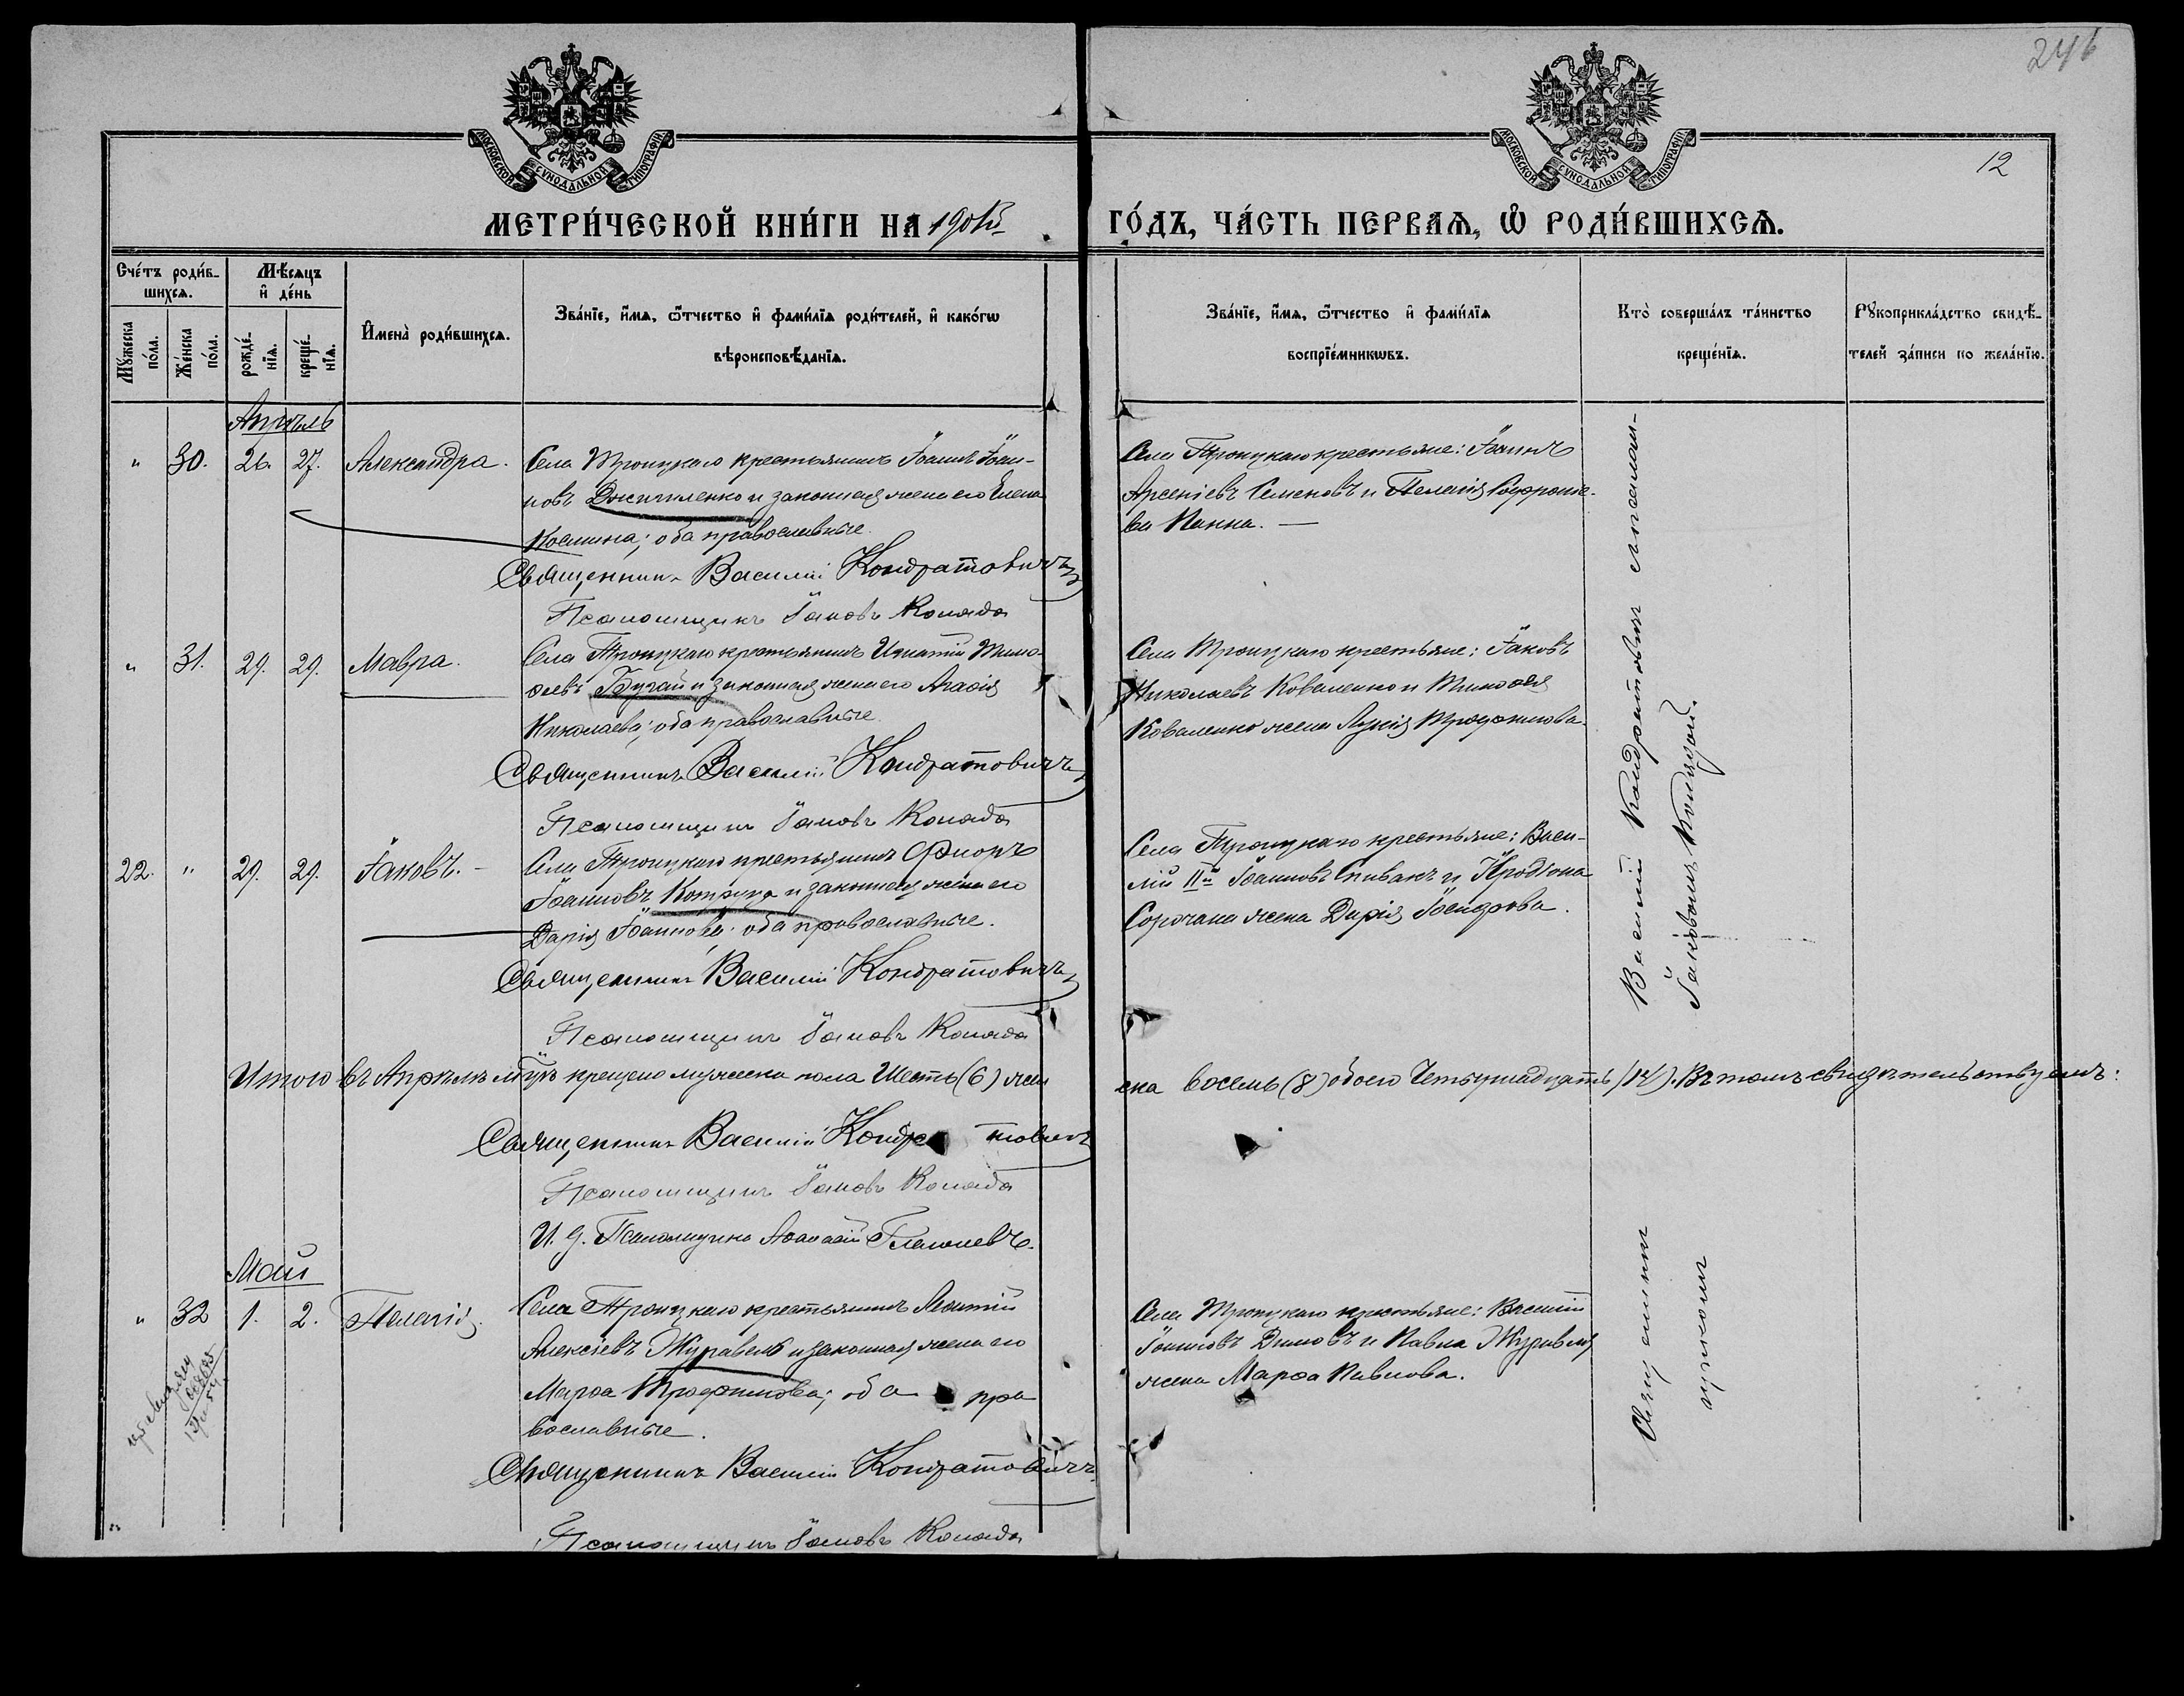 246
12
МОСКОВСКОЙ СѴНОДАЛЬНОЙ ТИПОГРАФІИ
МОСКОВСКОЙ СѴНОДАЛЬНОЙ ТИПОГРАФІИ
МЕТРИ́ЧЕСКОЙ КНИ́ГИ НА 190
ГО́ДЪ, ЧА́СТЬ ПЕРВАѦ, Ѡ҆ РОДИ́ВШИХСѦ.
Сче́тъ роди́в-
шихсѧ.
Мѣ́сѧцъ
и҆ де́нь
Мꙋ́жеска
по́ла.
Же́нска
по́ла.
рожде́-
нїѧ.
креще́-
нїѧ.
И҆мена̀ роди́вшихсѧ.
Зва́нїе, и҆́мѧ, ѻ҆́тчество и҆ фами́лїѧ роди́телей, и҆ како́гѡ
вѣроисповѣ́данїѧ.
Зва́нїе, и҆́мѧ, ѻ҆́тчество и҆ фами́лїѧ
воспрїе́мникѡвъ.
Кто̀ соверша́лъ та́инство
креще́нїѧ.
Рꙋкоприкла́дство свидѣ́-
телей за́писи по жела́нїю.
Апрѣль
" 30. 26. 27. Александра.
Села Троицкаго крестьянинъ Іоаннъ Іоан-
новъ и законная жена его Елена
Космина; оба православные.
Священникъ Василій Кондратовичъ
Псаломщикъ Іаковъ Коляда
Села Троицкаго крестьяне: Іоаннъ
Арсеніевъ Семеновъ и Пелагія Софроніе-
ва Панна. —
" 31. 29. 29. Мавра.
Села Троицкаго крестьянинъ Игнатій Тимо-
ѳеевъ Бугай и законная жена его Агаѳія
Николаева; оба православные.
Священникъ Василій Кондратовичъ
Псаломщикъ Іаковъ Коляда
Села Троицкаго крестьяне: Іаковъ
Николаевъ Коваленко и Тимоѳея
Коваленко жена Лукія Трофимова.
22. " 29. 29. Іаковъ. -
Села Троицкаго крестьянинъ Флоръ
Іоанновъ и законная жена его
Дарія Іоаннова; оба православные.
Священникъ Василій Кондратовичъ
Псаломщикъ Іаковъ Коляда
Села Троицкаго крестьяне: Васи-
лій IIй Іоанновъ Спивакъ и Иродіона
Сорочана жена Дарія Исидорова.
Итого въ Апрѣлѣ м-цѣ крещено мужеска пола Шесть (6) жен
ска восемь (8) обоего Четырнадцать (14). Въ томъ свидѣтельствуемъ:
Священникъ Василій Кондратовичъ
Псаломщикъ Іаковъ Коляда
И. д. Псаломщика Аѳанасій
Василій Кондратовичъ
Іаковомъ Колядой.
Май
" 32 1. 2. Пелагія.
Села Троицкаго крестьянинъ Леонтій
Алексіевъ Журавель и законная жена его
Марѳа Трофимова; оба пра
вославные.
Священникъ Василій Кондратовичъ
Псаломщикъ Іаковъ Коляда
Села Троицкаго крестьяне: Василій
Іоанновъ Димовъ и Павла Журавля
жена Марѳа Павлова.